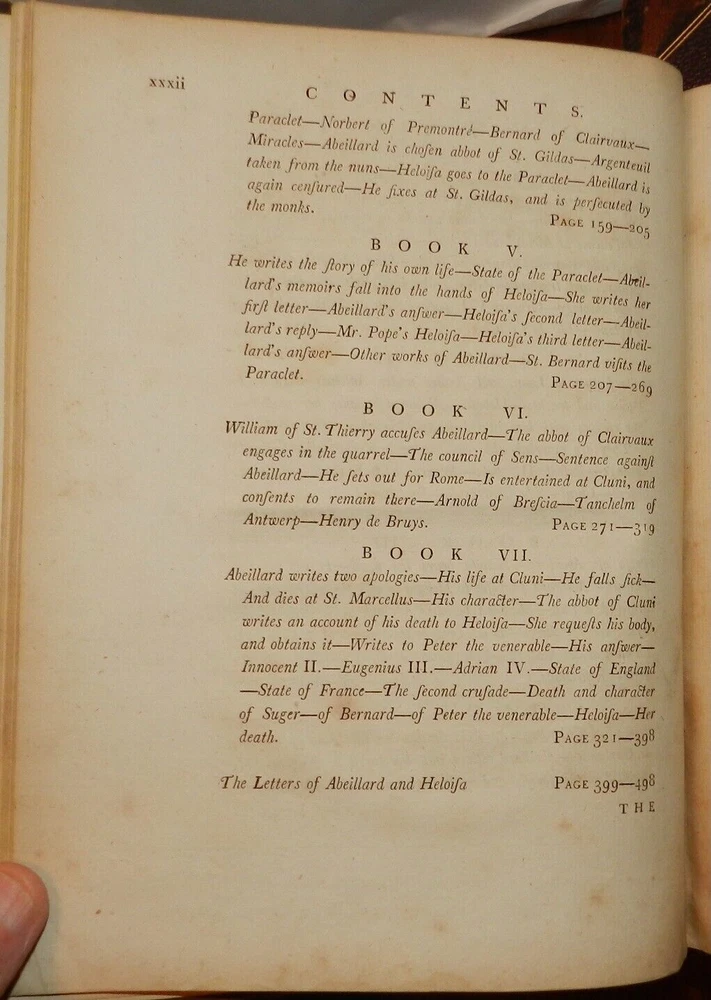 xxxii
CONTENTS.
Paraclet—Norbert of Premontré—Bernard of Clairvaux—
Miracles—Abeillard is choſen abbot of St. Gildas—Argenteuil
taken from the nuns—Heloiſa goes to the Paraclet—Abeillard is
again cenſured—He fixes at St. Gildas, and is perſecuted by
the monks. PAGE 159—205
BOOK V.
He writes the ſtory of his own life—State of the Paraclet—Abeil-
lard's memoirs fall into the hands of Heloiſa—She writes her
firſt letter—Abeillard's anſwer—Heloiſa's ſecond letter—Abeil-
lard's reply—Mr. Pope's Heloiſa—Heloiſa's third letter—Abeil-
lard's anſwer—Other works of Abeillard—St. Bernard viſits the
Paraclet. PAGE 207—269
BOOK VI.
William of St. Thierry accuſes Abeillard—The abbot of Clairvaux
engages in the quarrel—The council of Sens—Sentence againſt
Abeillard—He ſets out for Rome—Is entertained at Cluni, and
conſents to remain there—Arnold of Breſcia—Tanchelm of
Antwerp—Henry de Bruys. PAGE 271—319
BOOK VII.
Abeillard writes two apologies—His life at Cluni—He falls ſick—
And dies at St. Marcellus—His character—The abbot of Cluni
writes an account of his death to Heloiſa—She requeſts his body,
and obtains it—Writes to Peter the venerable—His anſwer—
Innocent II.—Eugenius III.—Adrian IV.—State of England
—State of France—The ſecond cruſade—Death and character
of Suger—of Bernard—of Peter the venerable—Heloiſa—Her
death. PAGE 321—398
The Letters of Abeillard and Heloiſa PAGE 399—498
THE